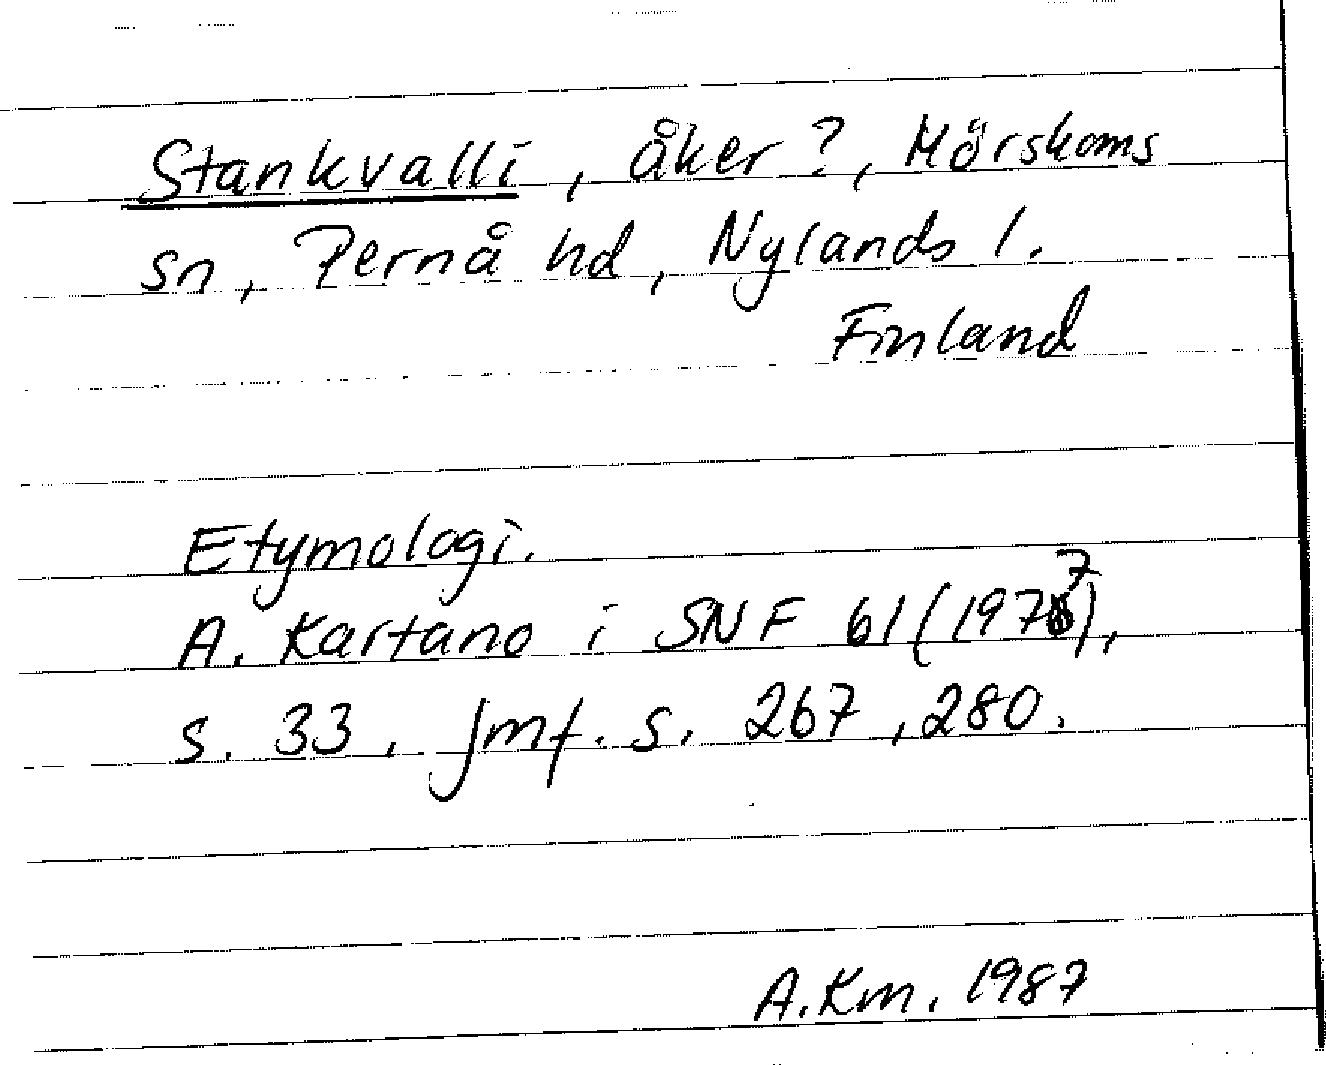 Stankvalli, åker?, Mörskoms
sn, Pernå hd, Nylands l.
Finland
Etymologi.
A. Kartano i SNF 61 (1977),
s. 33. Jmf. s. 267, 280.
A.Km. 1987